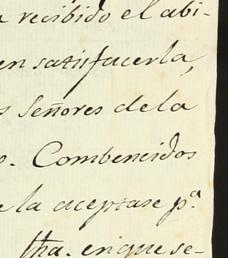 recibido el abi-
en satisfacerla,
Señores de la
Combencidos
la aceptase p.ª
fha. en que se-